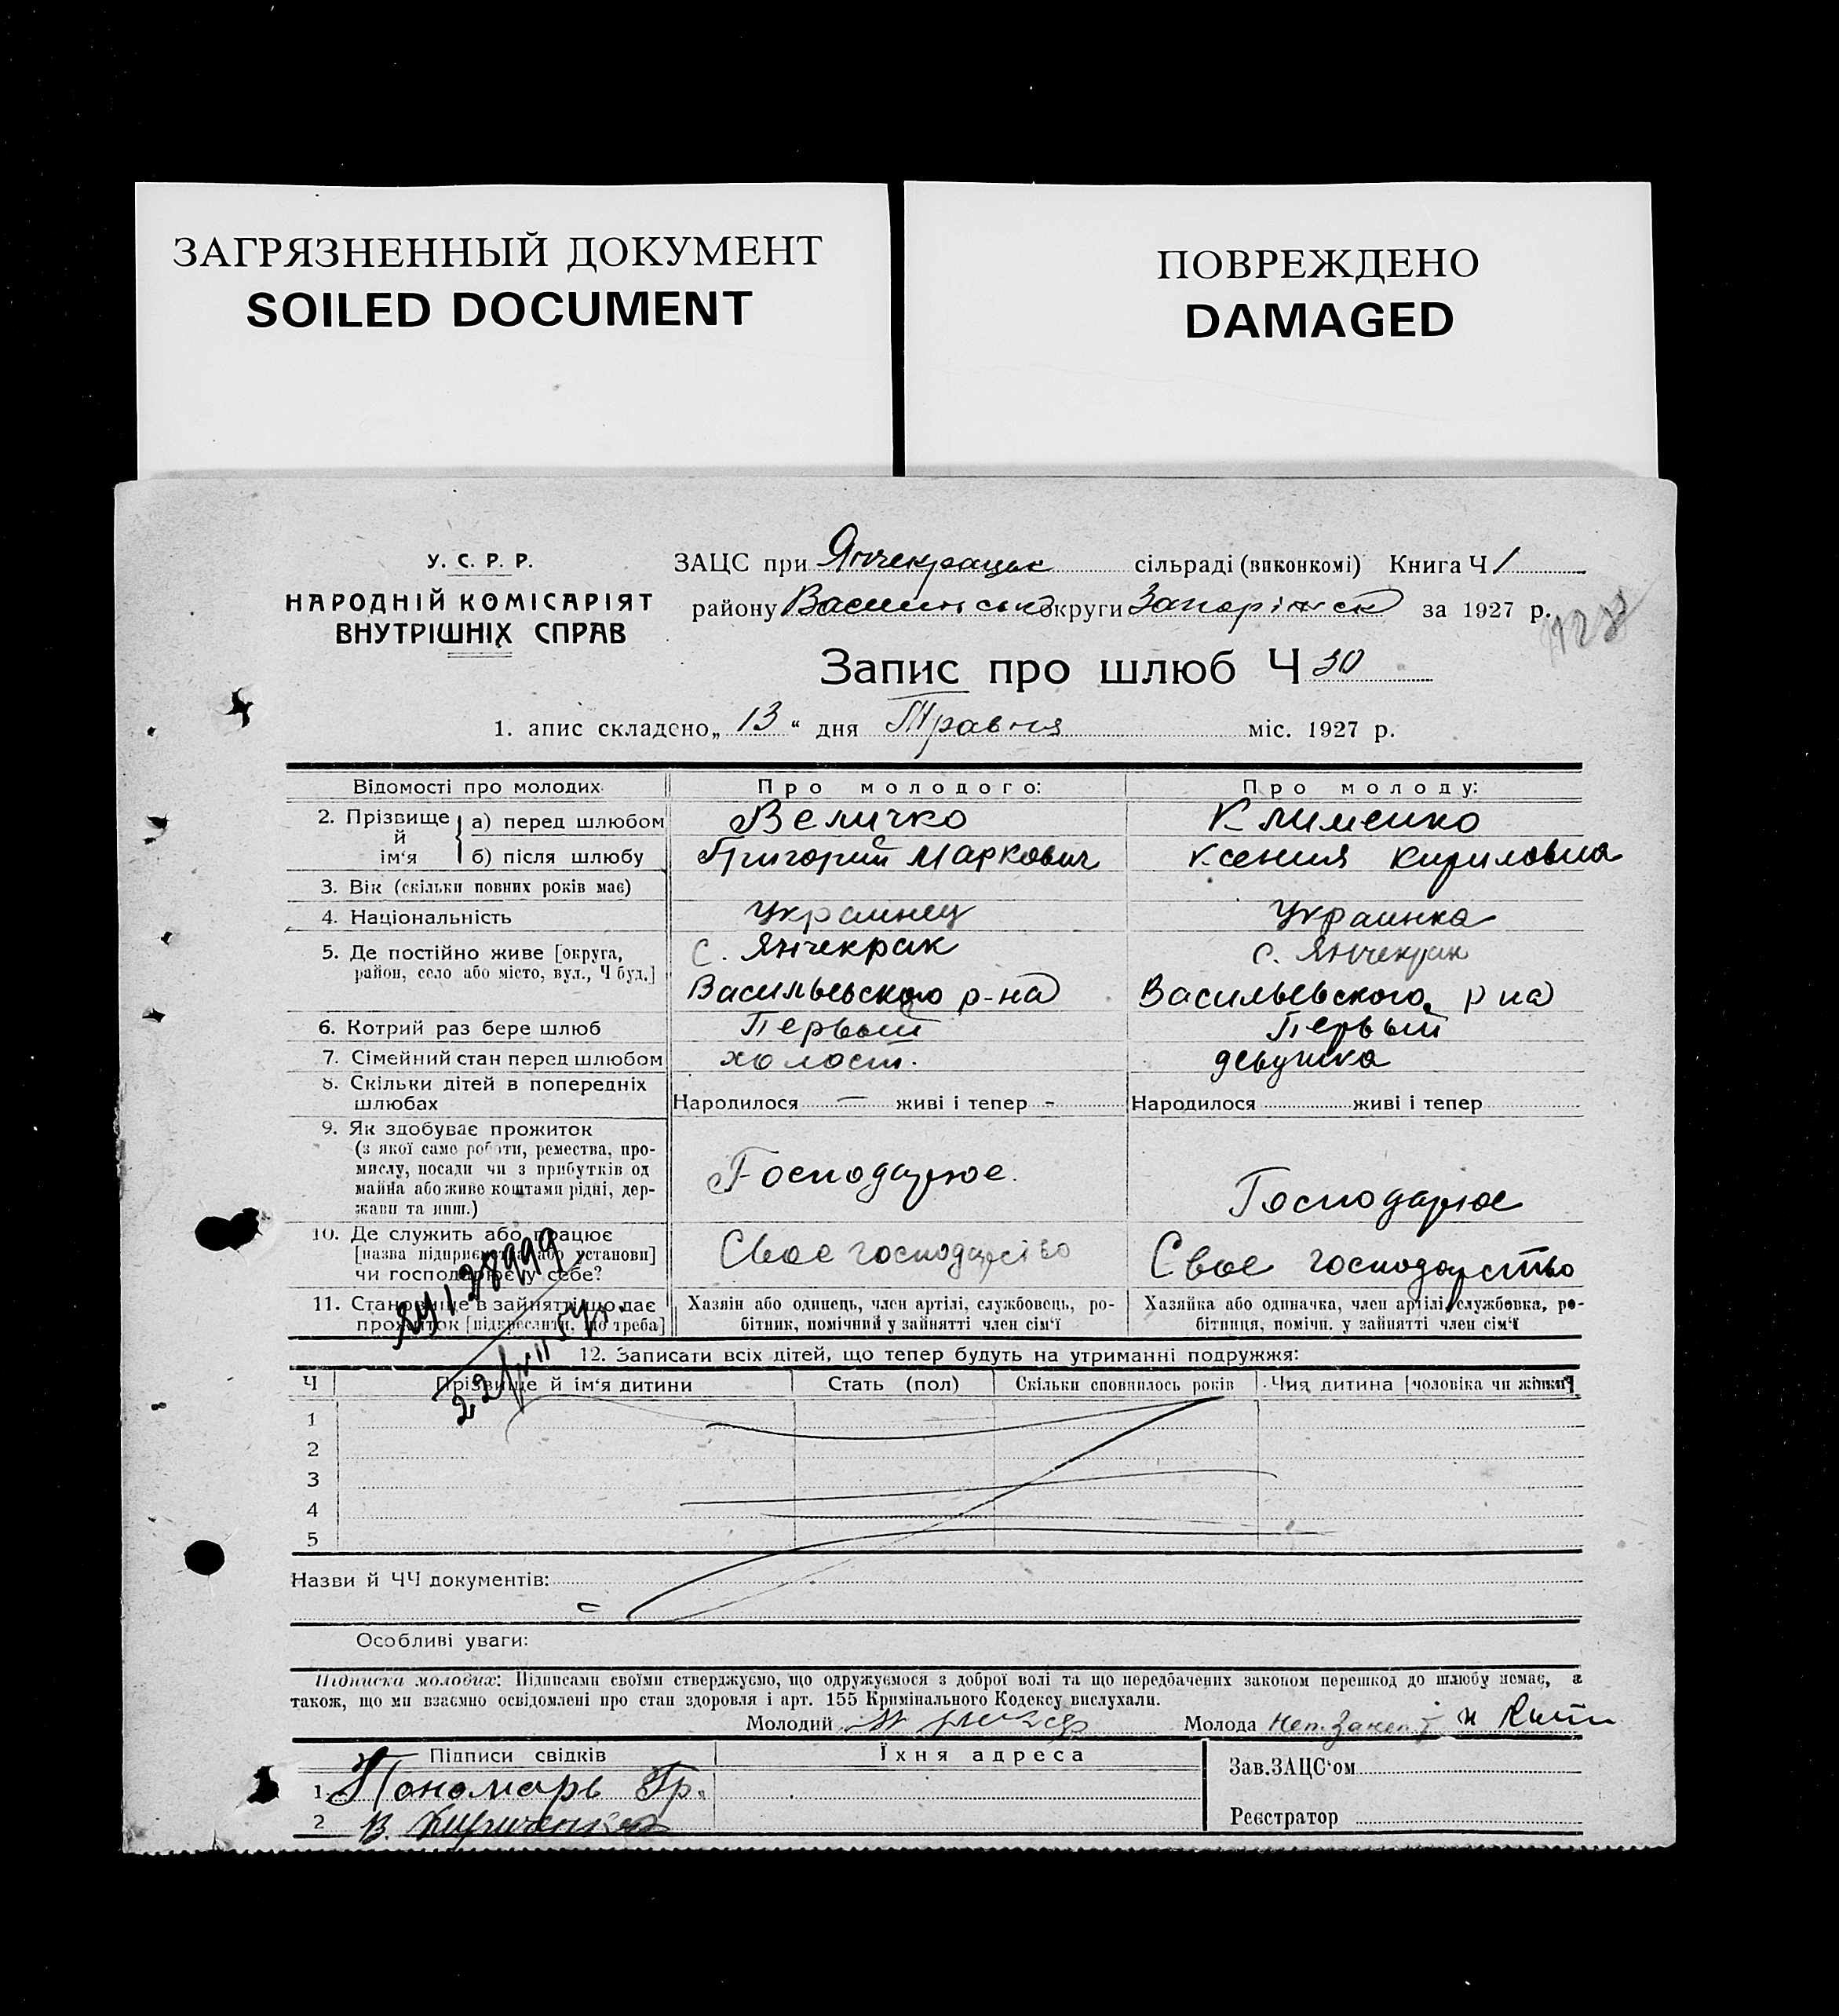 ЗАГРЯЗНЕННЫЙ ДОКУМЕНТ
SOILED DOCUMENT
ПОВРЕЖДЕНО
DAMAGED
У. С. Р. Р.
НАРОДНІЙ КОМІСАРІЯТ
ВНУТРІШНІХ СПРАВ
ЗАЦС при Янчекрацьк сільраді (виконкомі) Книга Ч 1
району округи Запоріжск за 1927 р.
Запис про шлюб Ч 30
1. апис складено „ 13 “ дня Травня міс. 1927 р.
Відомості про молодих Про молодого: Про молоду:
2. Прізвище й ім‘я а) перед шлюбом Величко Клименко
б) після шлюбу Григорий Маркович Ксения Кириловна
3. Вік (скільки повних років має)
4. Національність Украинец Украинка
5. Де постійно живе [округа, с. Янчекрак с. Янчекрак
район, село або місто, вул., Ч буд.]
Васильевского р-на Васильевского р на
6. Котрий раз бере шлюб Первый Первый
7. Сімейний стан перед шлюбом холост. девушка
8. Скільки дітей в попередніх
шлюбах Народилося — живі і тепер - Народилося живі і тепер
9. Як здобуває прожиток
(з якої саме роботи, ремества, про-
мислу, посади чи з прибутків од
майна або живе коштами рідні, дер-
жави та инш.)
Господарює. Господарює
10. Де служить або працює
[назва підприємства або установи]
чи господарює у себе?
Своє господарство Своє господарство
11. Становище в зайнятті що дає
прожиток [підкреслити, що треба]
Хазяїн або одинець, член артілі, службовець, ро-
бітник, помічний у зайнятті член сім‘ї
Хазяйка або одиначка, член артілі, службовка, ро-
бітниця, помічн. у зайнятті член сім‘ї
12. Записати всіх дітей, що тепер будуть на утриманні подружжя:
Ч Прізвище й ім‘я дитини Стать (пол) Скільки сповнилось років Чия дитина [чоловіка чи жінки].
1
2
3
4
5
Назви й ЧЧ документів:
Особливі уваги:
Підписка молодих: Підписами своїми стверджуємо, що одружуємося з доброї волі та що передбачених законом перешкод до шлюбу немає, а
також, що ми взаємно освідомлені про стан здоровля і арт. 155 Кримінального Кодексу вислухали.
Молодий Молода
Підписи свідків Їхня адреса
1. Пономарь Гр.
2 В.
Зав.ЗАЦС‘ом
Реєстратор